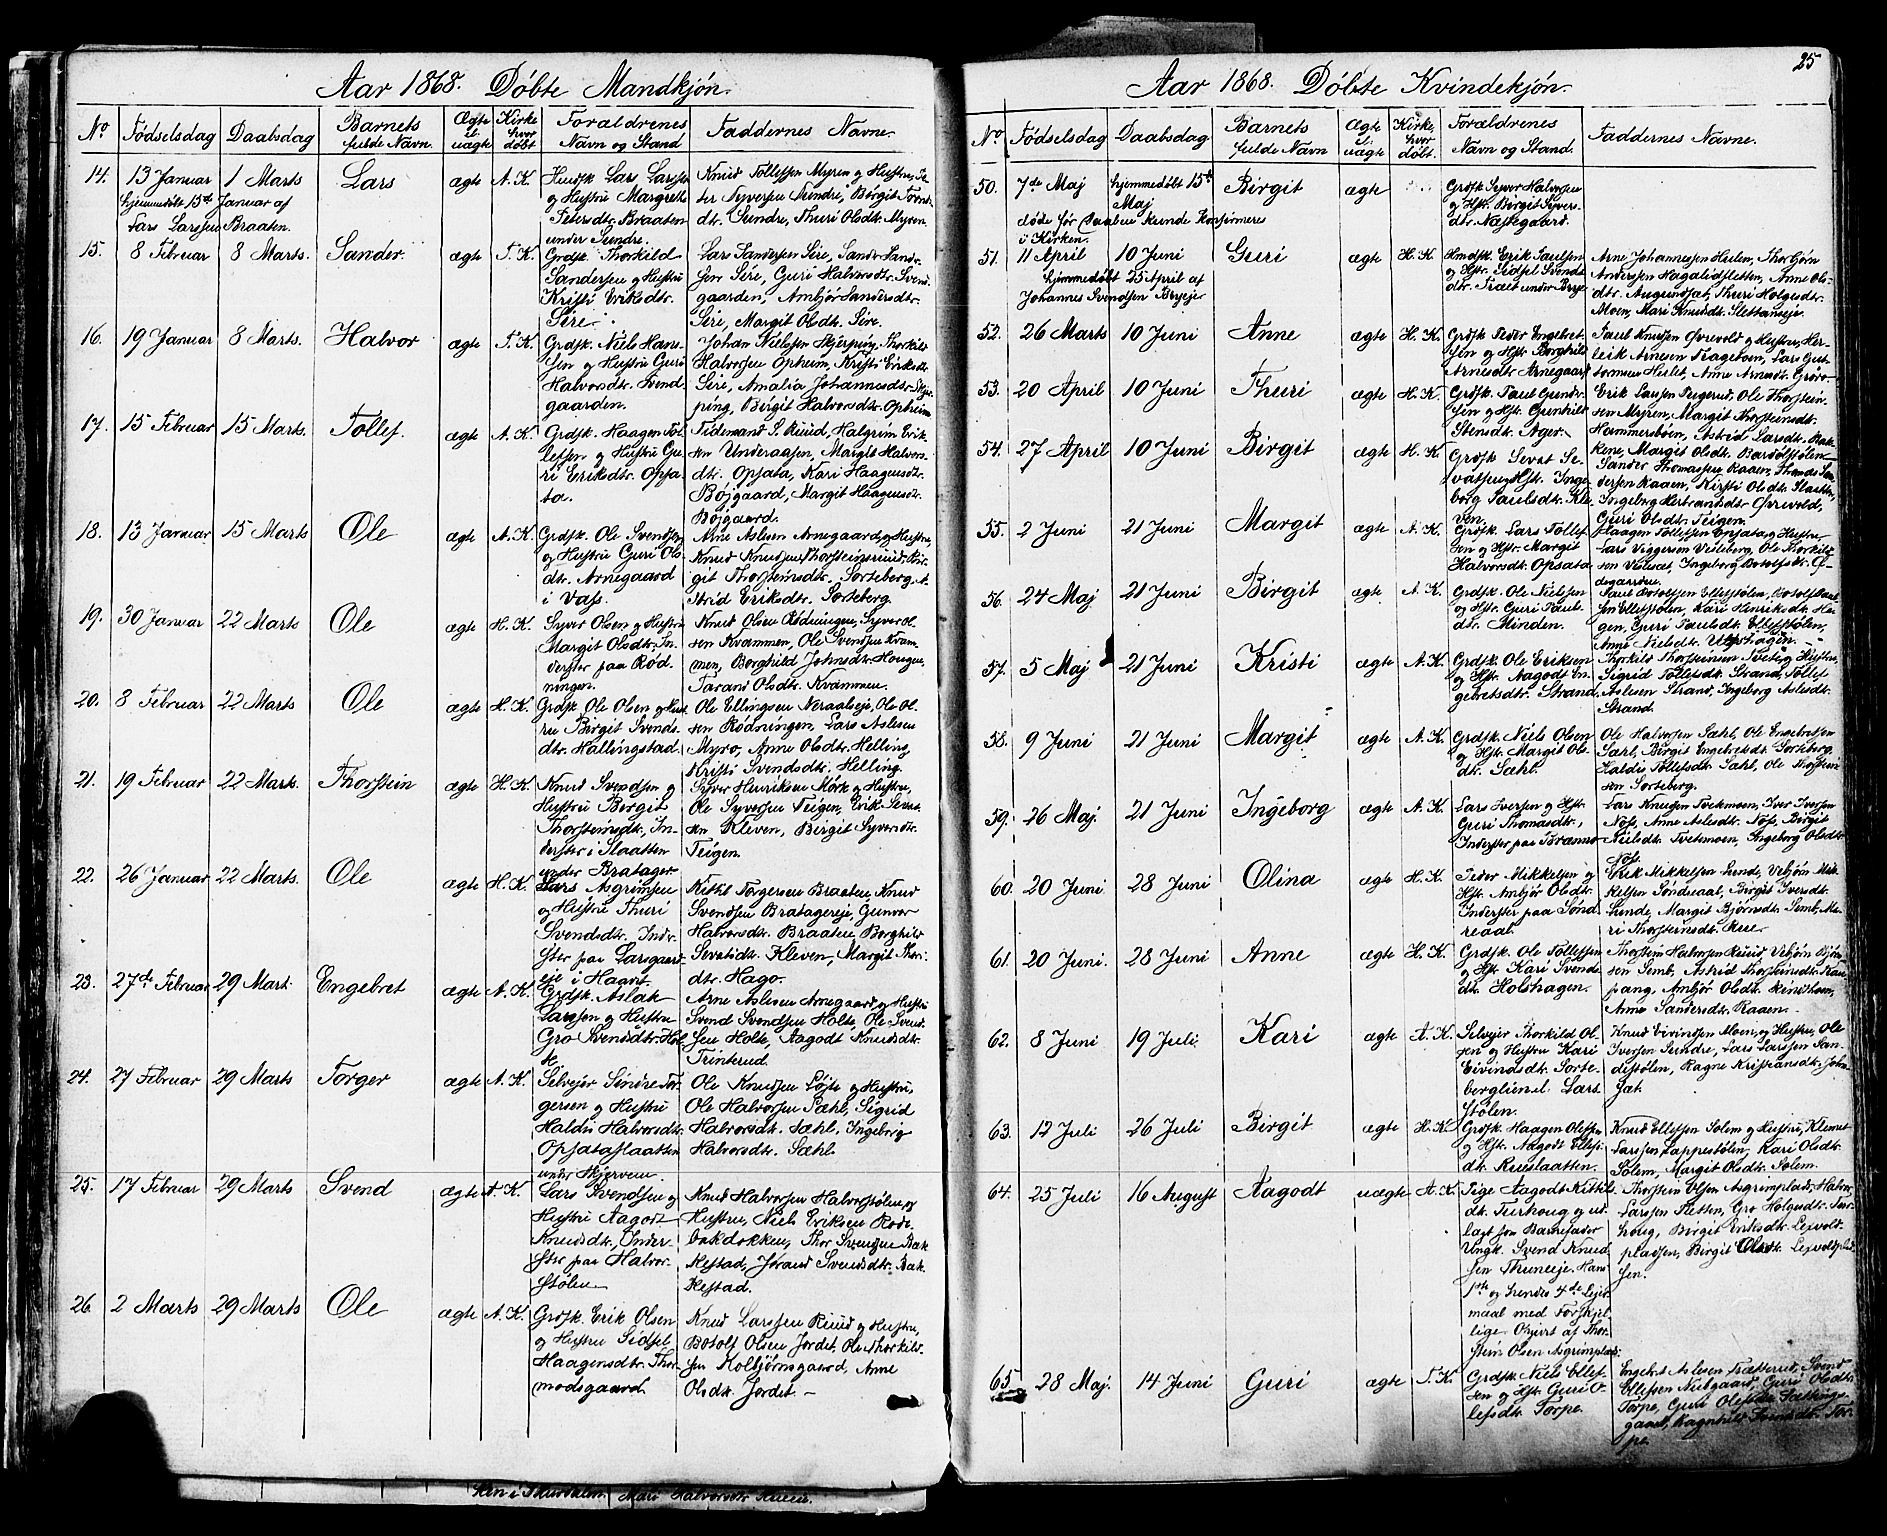 Aar 1868. Døbte Mandkjøn.
No Fødselsdag Daabsdag Barnets fulde Navn. Ægte el. uægte Kirke hvor døbt Forældrenes Navn og Stand Faddernes Navne.
14. 13 Januar 1 Marts Lars ægte A. K. Husfk. Lars Larssen
hjemmedøbt 15de Januar af
Lars Larssen Braaten.
og Hustru Margrethe
Braaten
under Sundre.
Knud Tollefsen Myren og Hustru,
dt. Sundre, Thuri Olsdt. Myren.
15. 8 Februar 8 Marts. Sander. ægte T. K. Grdsk. Thorkild
Sandersen og Hustru
Kristi Eriksdtr.
Sire.
Lars Sandersen Sire, Sander Sander-
sen Sire, Guri Halvorsdtr. Svend-
gaarden, Ambjør Sandersdtr.
Sire, Margit Olsdt. Sire.
16. 19 Januar 8 Marts. Halvor ægte T. K. Grdsk. Niels Han-
sen og Hustru Guri
Halvorsdtr. Svend
gaarden.
Johan Nielssen Skjerping, Thorkild
Halvorsen Opheim, Kristi Eriksdt.
Sire, Amalia Johannesdtr. Skjer-
ping, Birgit Halvorsdtr. Opheim
17. 15 Februar 15 Marts. Tollef. ægte A. K. Grdsk. Haagen Tol-
lefsen og Hustru Gu-
ri Eriksdtr. Opsa-
ta.
Tidemand S. Ruud, Halgrim Erik-
sen Underaasen, Margit Halvors-
dtr. Opsata, Kari Haagensdtr.
Bøjgaard, Margit Haagensdtr.
Bøjgaard.
18. 13 Januar 15 Marts Ole ægte A. K. Grdsk. Ole Svendsen
og Hustru Guri Ols-
dt. Arnegaard
i Vass.
Arne Aslesen Arnegaard og Hustru,
Knud Knudsen Thorsteinsruud, Bir-
git Thorsteinsdtr. Sorteberg, A-
strid Eriksdtr. Sorteberg.
19. 30 Januar 22 Marts Ole ægte H. K. Syver Olsen og Hustru
Margit Olsdtr. In-
derster paa Rød-
ningen.
Knud Olsen Rødningen, Syver Ol-
sen Kvammen, Ole Svendsen Kvam-
men, Borghild Johnsdtr. Hougen,
Tarand Olsdtr. Kvammen.
20. 8 Februar 22 Marts Ole ægte H. K. Grdsk. Ole Olsen og Hust-
ru Birgit Svends-
dtr. Hallingstad
Ole Ellingsen Neraaleje, Ole Ol-
sen Rødningen, Lars Aslesen
Myro, Anne Olsdtr. Helling,
Kristi Svendsdtr. Helling.
21. 19 Februar 22 Marts Thorstein ægte H. K. Knud Svendsen og
Hustru Bergit
Thorsteinsdtr. In-
derster i Slaatten
under Bratager
Syver Henriksen Mørk og Hustru,
Ole Syversen Teigen, Erik Sevat-
sen Kleven, Birgit Syversdtr.
Teigen.
22. 26 Januar 22 Marts. Ole ægte H. K. Lars Asgrimsen
og Hustru Thuri
Svendsdtr. Inder-
ster paa Larsgaard-
eje i Haavt.
Kittil Torgersen Braaten, Knud
Svendsen Bratagereje, Gunvor
Halvorsdtr. Braaten Borghild
Sevatsdtr. Kleven, Margit Thor-
dtr. Hago.
23. 27de Februar 29 Mart. Engebret ægte A. K. Grdsk. Aslak
Larssen og Hustru
Gro Svendsdtr. Hol-
te.
Arne Aslesen Arnegaard og Hustru
Svend Svendsen Holte, Ole Svend-
sen Holte, Aagodt Knudsdtr.
Trinterud.
24. 27 Februar 29 Marts Torger ægte A. K. Selvejer Sindre Tor-
gersen og Hustru
Haldis Halvorsdtr.
Opsataslaatten
under Skjerven.
Ole Knudsen Løste og Hustru,
Ole Halvorsen Sæhl, Sigrid
Halvorsdt. Sæhl, Ingebrig
Halvorsdt. Sæhl.
25. 17 Februar 29 Marts Svend ægte A. K. Lars Svendsen og
Hustru Aagodt
Knudsdtr. Inder-
ster paa Halvor-
stølen.
Knud Halvorsen Halvorstølen og
Hustru, Niels Eriksen Rode-
bakdokken, Thor Svendsen Bak-
Hestad, Jørand Svendsdtr. Bak-
Hestad.
26. 2 Marts 29 Marts Ole ægte A. K. Grdsk. Erik Olsen
og Hustru Sidsel
Haagensdtr. Thor-
modsgaard
Knud Larssen Ruud og Hustru,
Botolf Olsen Jordet, Ole Thorkild-
sen Kolbjørnsgaard, Anne
Olsdt. Jordet –
Mari Halvorsdtr.
25
Aar 1868. Døbte Kvindekjøn.
No. Fødselsdag Daabsdag. Barnets fulde Navn Ægte el. uægte Kirke, hvor døbt. Forældrenes Navn og Stand. Faddernes Navne.
50. 7de Maj hjemmedøbt 15de Maj Birgit ægte Grdsk. Syver Halvorsen
og Hst. Birgit Syvers-
dtr. Næssegaard.
døde før Daaben kunde konfirmeres
i Kirken.
51. 11 April 10 Juni Guri ægte H. K.
hjemmedøbt 25 April af
Johannes Svendsen Bryeje
Husmdsk. Erik Paulsen
og Hst. Sidsel Svends-
dtr. Træet under Brye.
Arne Johannessen Heslem, Thorbjørn
Anderssen Hagalidsletten, Anne Ols-
dtr. Augundsæt, Thuri Holgesdtr.
Moen, Mari Knudsdt. Slettaneeje.
52. 26 Marts 10 Juni Anne ægte H. K. Grdsk. Peder Engebret-
sen og Hst. Borghild
Arnesdtr. Arnegaard
Paul Knudsen Øvrevold og Hustru, Her-
leik Arnesen Tragethon, Lars Gut-
tormsen Huslet, Anne Arnesdt. Grøv-
53. 20 April 10 Juni Thuri ægte H. K. Grdsk. Paul Gunder-
sen og Hst. Gunhild
Stensdt. Ager.
Erik Larssen Tuperud, Ole Thorstein-
sen Myren, Margit Thorsteinsdt.
Hammersbøen, Astrid Larsdt. Bak-
kene, Margit Olsdt. Bardølstølen
54. 27 April 10 Juni Birgit ægte H. K. Grdsk Sevat Se-
vatsen og Hst. Inge-
borg Paulsdt. Kle-
ven.
Sander Thomassen Raaen, Thomas San-
dersen Raaen, Kirsti Olsdt. Slaatten,
Ingeborg Herbrandsdtr Øvrevold,
Guri Olsdt. Teigen.
55. 2 Juni 21 Juni Margit ægte A. K. Grdsk. Lars Tollef-
sen og Hst. Margit
Halvorsdt. Opsata
Haagen Tollefsen Opsata og Hustru,
Lars Viggersen Vedeberg, Ole Thorkild-
sen Villand, Ingeborg Botolfsdtr.
56. 24 Maj 21 Juni Birgit ægte A. K. Grdsk. Ole Nielsen
og Hst. Guri Paul-
dtr. Minden.
Paul Botolfsen Ellefstølen, Botolf Paul-
sen Ellefstølen, Kari Henriksdt. Ha-
gen, Guri Paulsdt. Ellefstølen,
Anne Nielsdt. Ulshagen.
57. 5 Maj 21 Juni Kristi ægte A. K. Grdsk. Ole Eriksen
og Hst. Aagodt En-
gebretsdtr. Strand.
Thorkild Thorsteinsen Tveito og Hustru,
Sigrid Tollefsdt. Strand, Tollef
Aslesen Strand, Ingeborg Aslesdt.
Strand.
58. 9 Juni 21 Juni Margit ægte A. K. Grdsk. Niels Olsen
og Hst. Margit Ols-
dt. Sæhl.
Ole Halvorsen Sæhl, Ole Engebretsen
Sæhl, Birgit Engebretsdt. Sorteberg,
Haldis Tollefsdt. Sæhl, Ole Thorstein-
sen Sorteberg.
59. 26 Maj. 21 Juni Ingeborg ægte A. K. Lars Iversen og Hst.
Guri Thomasdtr.,
Inderster paa Brænno
Lars Knudsen Tvetmoen, Iver Iversen
Nøss, Anne Aslesdt. Nøss, Birgit
Nielsdt. Tvetmoen, Ingeborg Olsdt.
Nøss.
60. 20 Juni 28 Juni Olina ægte H. K. Peder Mikkelsen og
Hst. Ambjør Olsdtr.
Inderster paa Sønd-
reaal.
Erik Mikkelsen Lunde, Vebjørn Mik-
kelsen Søndreaal, Birgit Iversdt.
Lunde, Margit Bjørnsdt. Semb, Ma-
ri Thorsteinsdt. Rue.
61. 20 Juni. 28 Juni Anne ægte H. K. Grdsk. Ole Tollefsen
og Hst. Kari Svends-
dt. Holshagen.
Thorstein Halvorsen Ruud, Vebjørn Bjørn-
sen Semb, Astrid Thorsteinsdt. Kam-
pang, Ambjør Olsdt. Rindheim,
Anne Sandersdt. Raaen.
62. 8 Juni 19 Juli. Kari ægte A. K. Selvejer Thorkild Ol-
sen og Hustru Kari
Eivindsdt. Sorte-
berglien el. Lars-
stølen.
Knud Eivindsen Moen, og Hustru, Ole
Iversen Sundre, Lars Larssen San-
distølen, Ragne Kristiansdt. John-
sæt.
63. 12 Juli 26 Juli Birgit ægte H. K. Grdsk. Haagen Olsen
og Hst. Aagodt Ellefs-
dt. Rueslaatten.
Knud Ellefsen Solem og Hustru, Klemet
Larssen Lappestølen, Kari Olsdt.
Solem, Margit Olsdt. Solem.
64. 25 Juli 16 August Aagodt uægte A. K. Pige Aagodt Kittils-
dt. Tuerhoug og ud-
lagt som Barnefader
Ungk. Svend Knud-
sen Thuneeje. Hans
1ste og hendes 4de Lejer-
maal med Forskjel-
lige. Opgivet af Thor-
stein Olsen Asgrimplads.
Thorstein Olsen Asgrimplads, Halvor
Larssen Sletten, Gro Holgesdtr. Tuer-
houg, Birgit Eriksdt. Lejvold-
pladsen, Birgit Olsdt. Lejvoldplad-
sen.
65 28 Maj. 14 Juni Guri ægte T. K. Grdsk Niels Ellef-
sen og Hst. Guri O-
lefsdt. Torpe.
Engebret Aslesen Trætterud, Svend
Ellefsen Nubgaard, Guri Olsdt.
Torpe, Guri Olefsdt. Sætting-
gaard, Ragnhild Svendsdt. Tor-
pe.